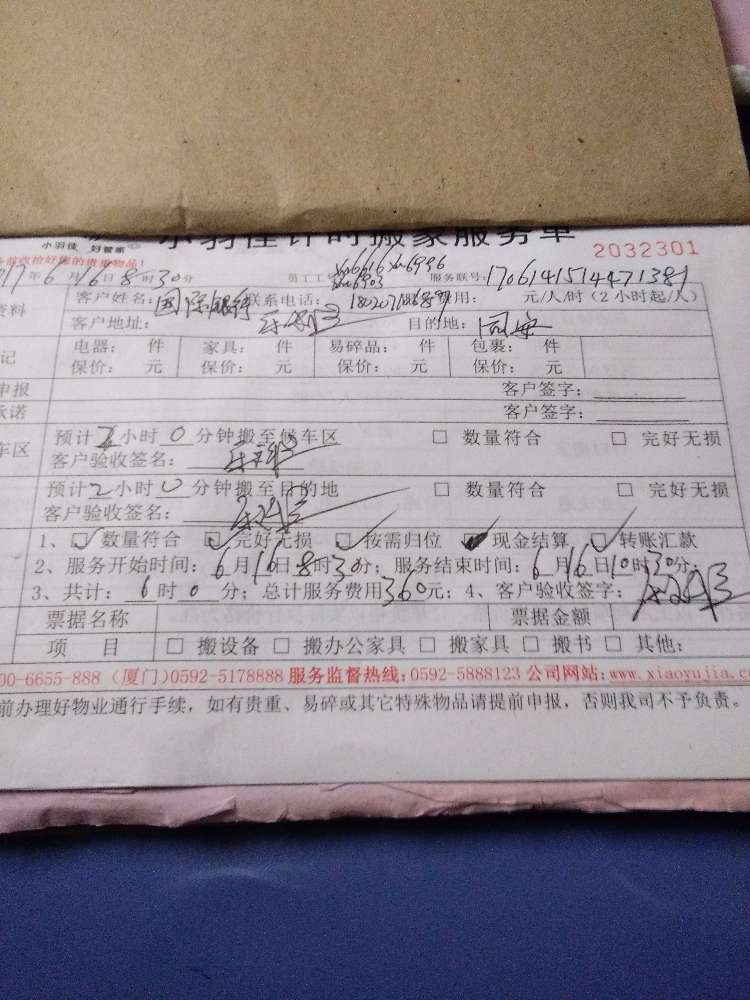 小羽佳 好管家
小羽佳计时搬家服务单
2032301
务前收拾好您的贵重物品!
017年6月16日8时30分 员工工号: xm6616 xm6936 服务联号: 1706141514471389
xm6903
资料 客户姓名: 国际银行 联系电话: 费用: 元/人/时(2小时起/人)
客户地址: 目的地: 同安
记 电器: 件 家具: 件 易碎品: 件 包裹: 件
保价: 元 保价: 元 保价: 元 保价: 元
申报 客户签字:
承诺 客户签字:
车区 预计2小时0分钟搬至候车区 □ 数量符合 □ 完好无损
客户验收签名:
预计2小时0分钟搬至目的地 □ 数量符合 □ 完好无损
客户验收签名:
1、☑数量符合 ☑完好无损 ☑按需归位 ☑现金结算 ☑转账汇款
2、服务开始时间:6月16日8时30分;服务结束时间:6月16日10时30分;
3、共计:6时0分;总计服务费用360元;4、客户验收签字:
票据名称 票据金额
项 目 □ 搬设备 □ 搬办公家具 □ 搬家具 □ 搬书 □ 其他:
00-6655-888 (厦门)0592-5178888 服务监督热线:0592-5888123 公司网站:www.xiaoyujia.com
前办理好物业通行手续,如有贵重、易碎或其它特殊物品请提前申报,否则我司不予负责。